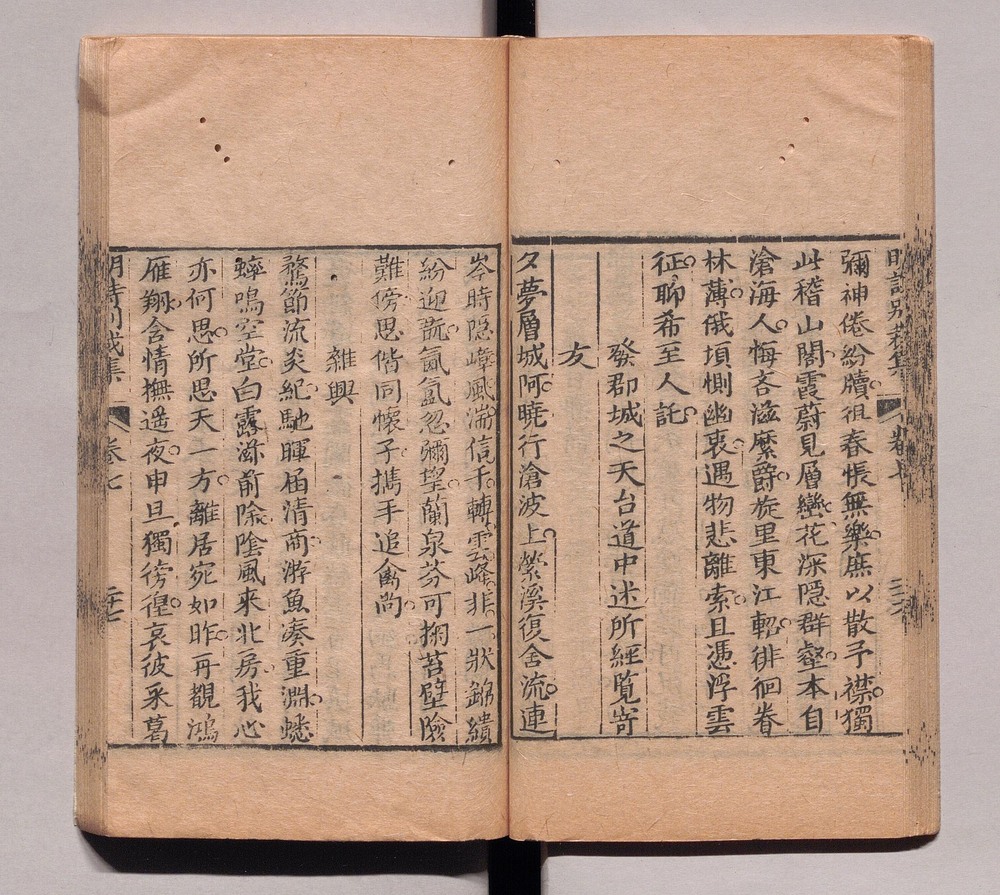 明詩別裁集 卷七
彌神倦紛牘徂春悵無樂庶以散予襟獨
此稽山閣霞蔚見層巒花深隱群壑本自
滄海人悔吝滋縻爵旋里東江軺徘徊眷
林薄俄頃惻幽衷遇物悲離索且憑浮雲
征聊希至人託
發郡城之天台道中述所經覽寄
友
夕夢層城阿曉行滄波上縈溪復舍流連
岑時隱嶂風湍信千轉雲峰非一狀錦繢
紛迎翫氤氳忽彌望蘭泉芬可掬苔壁險
難傍思偕同懷子攜手追禽尚
雜興
鶩節流炎紀馳暉屆清商游魚湊重淵蟋
蟀鳴空堂白露滋前除陰風來北房我心
亦何思所思天一方離居宛如昨再覩鴻
雁翔含情撫遥夜申旦獨徬徨哀彼采葛
明詩別裁集 卷七